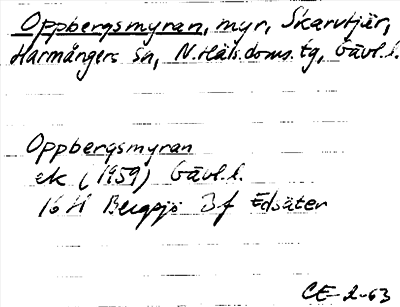 Oppbergsmyran, myr, Skarvtjär,
Harmångers sn, N. Häls. doms. tg, Gävl. l.
Oppbergsmyran
ek (1959) Gävl. l.
16 H Bergsjö 3f Edsäter
CE-2-63